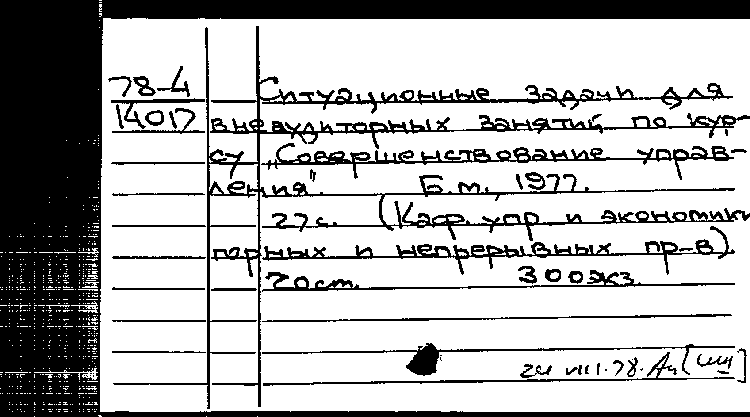 78-4 Ситуационные задачи для
14017 внеаудиторных занятий по кур-
су „Совершенствование управ-
ления". Б.м., 1977.
27 с. (Каф. упр. и экономики
горных и непрерывных пр-в).
20 ст. 300 экз.
24 VIII.78.